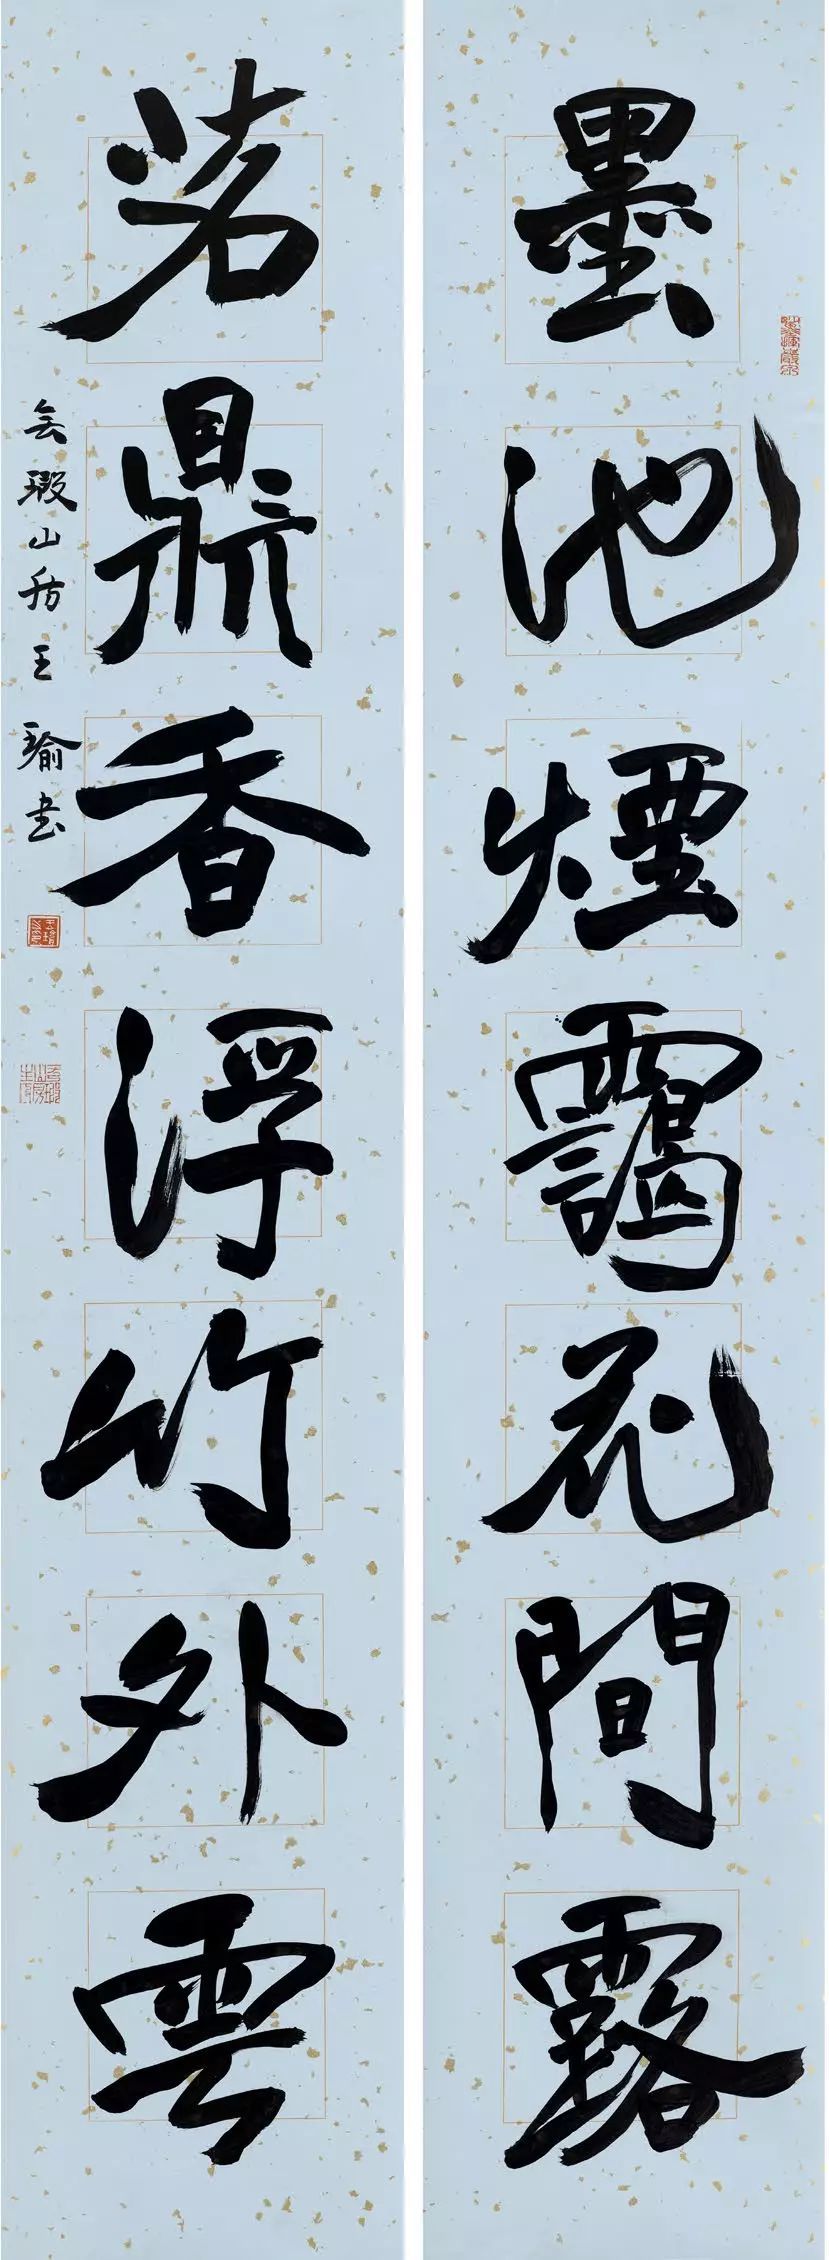 墨池煙靄花間露
茗鼎香浮竹外雲
玄瑕山房王瑜書